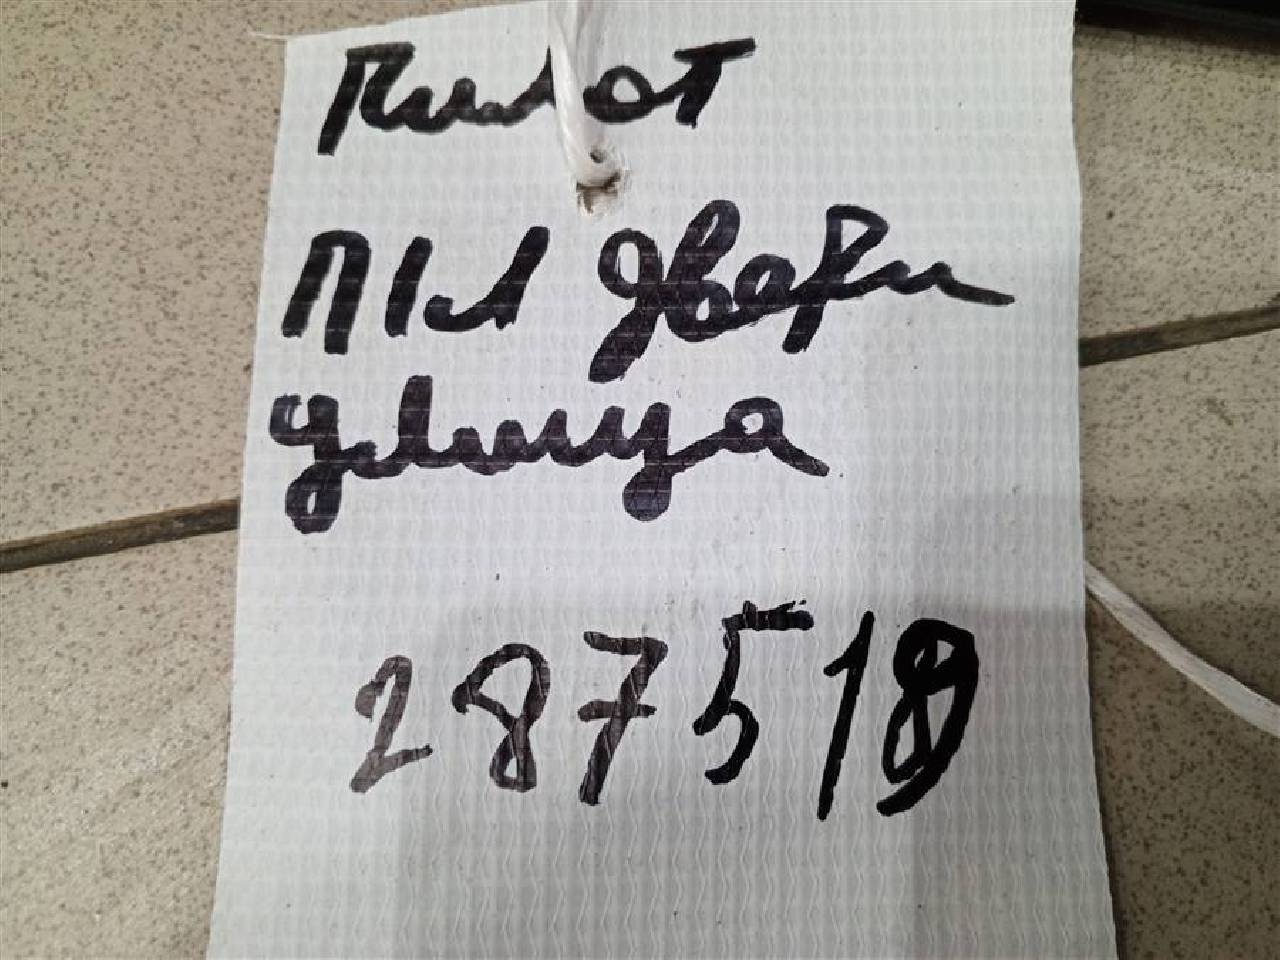 Пилот
П/Л двери
улица
287518